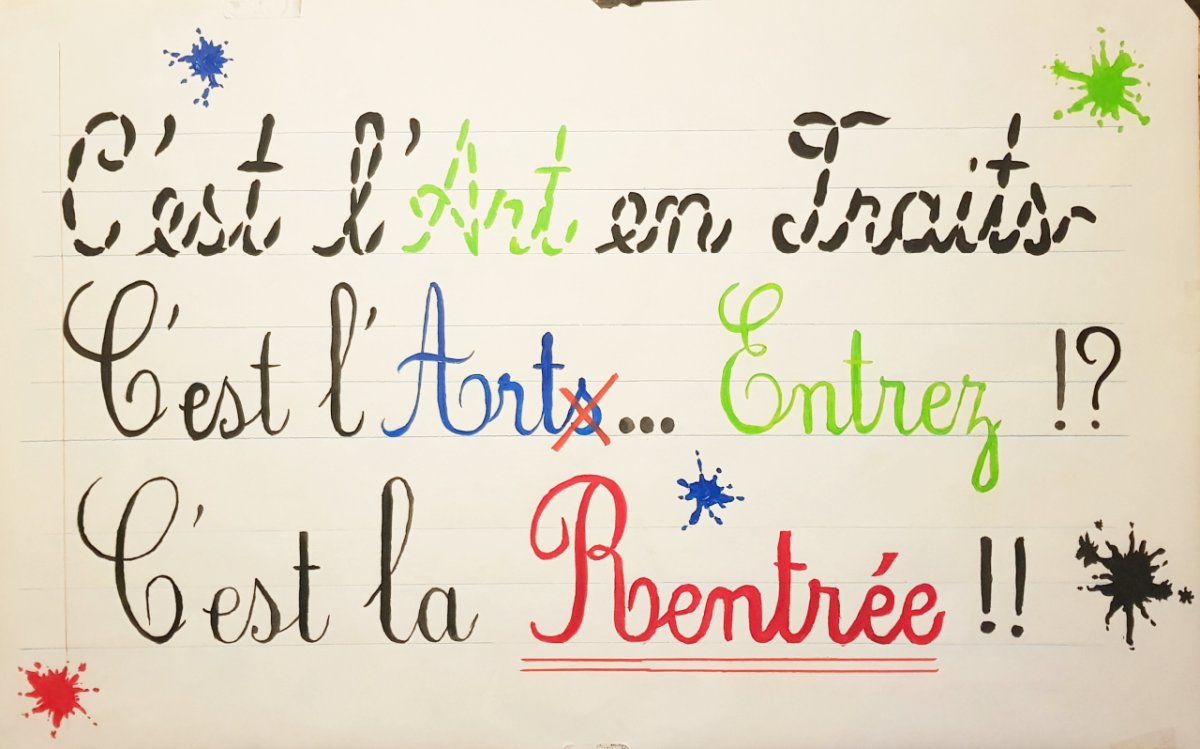 C'est l'Art en Traits
C'est l'Arts... Entrez !?
C'est la Rentrée !!